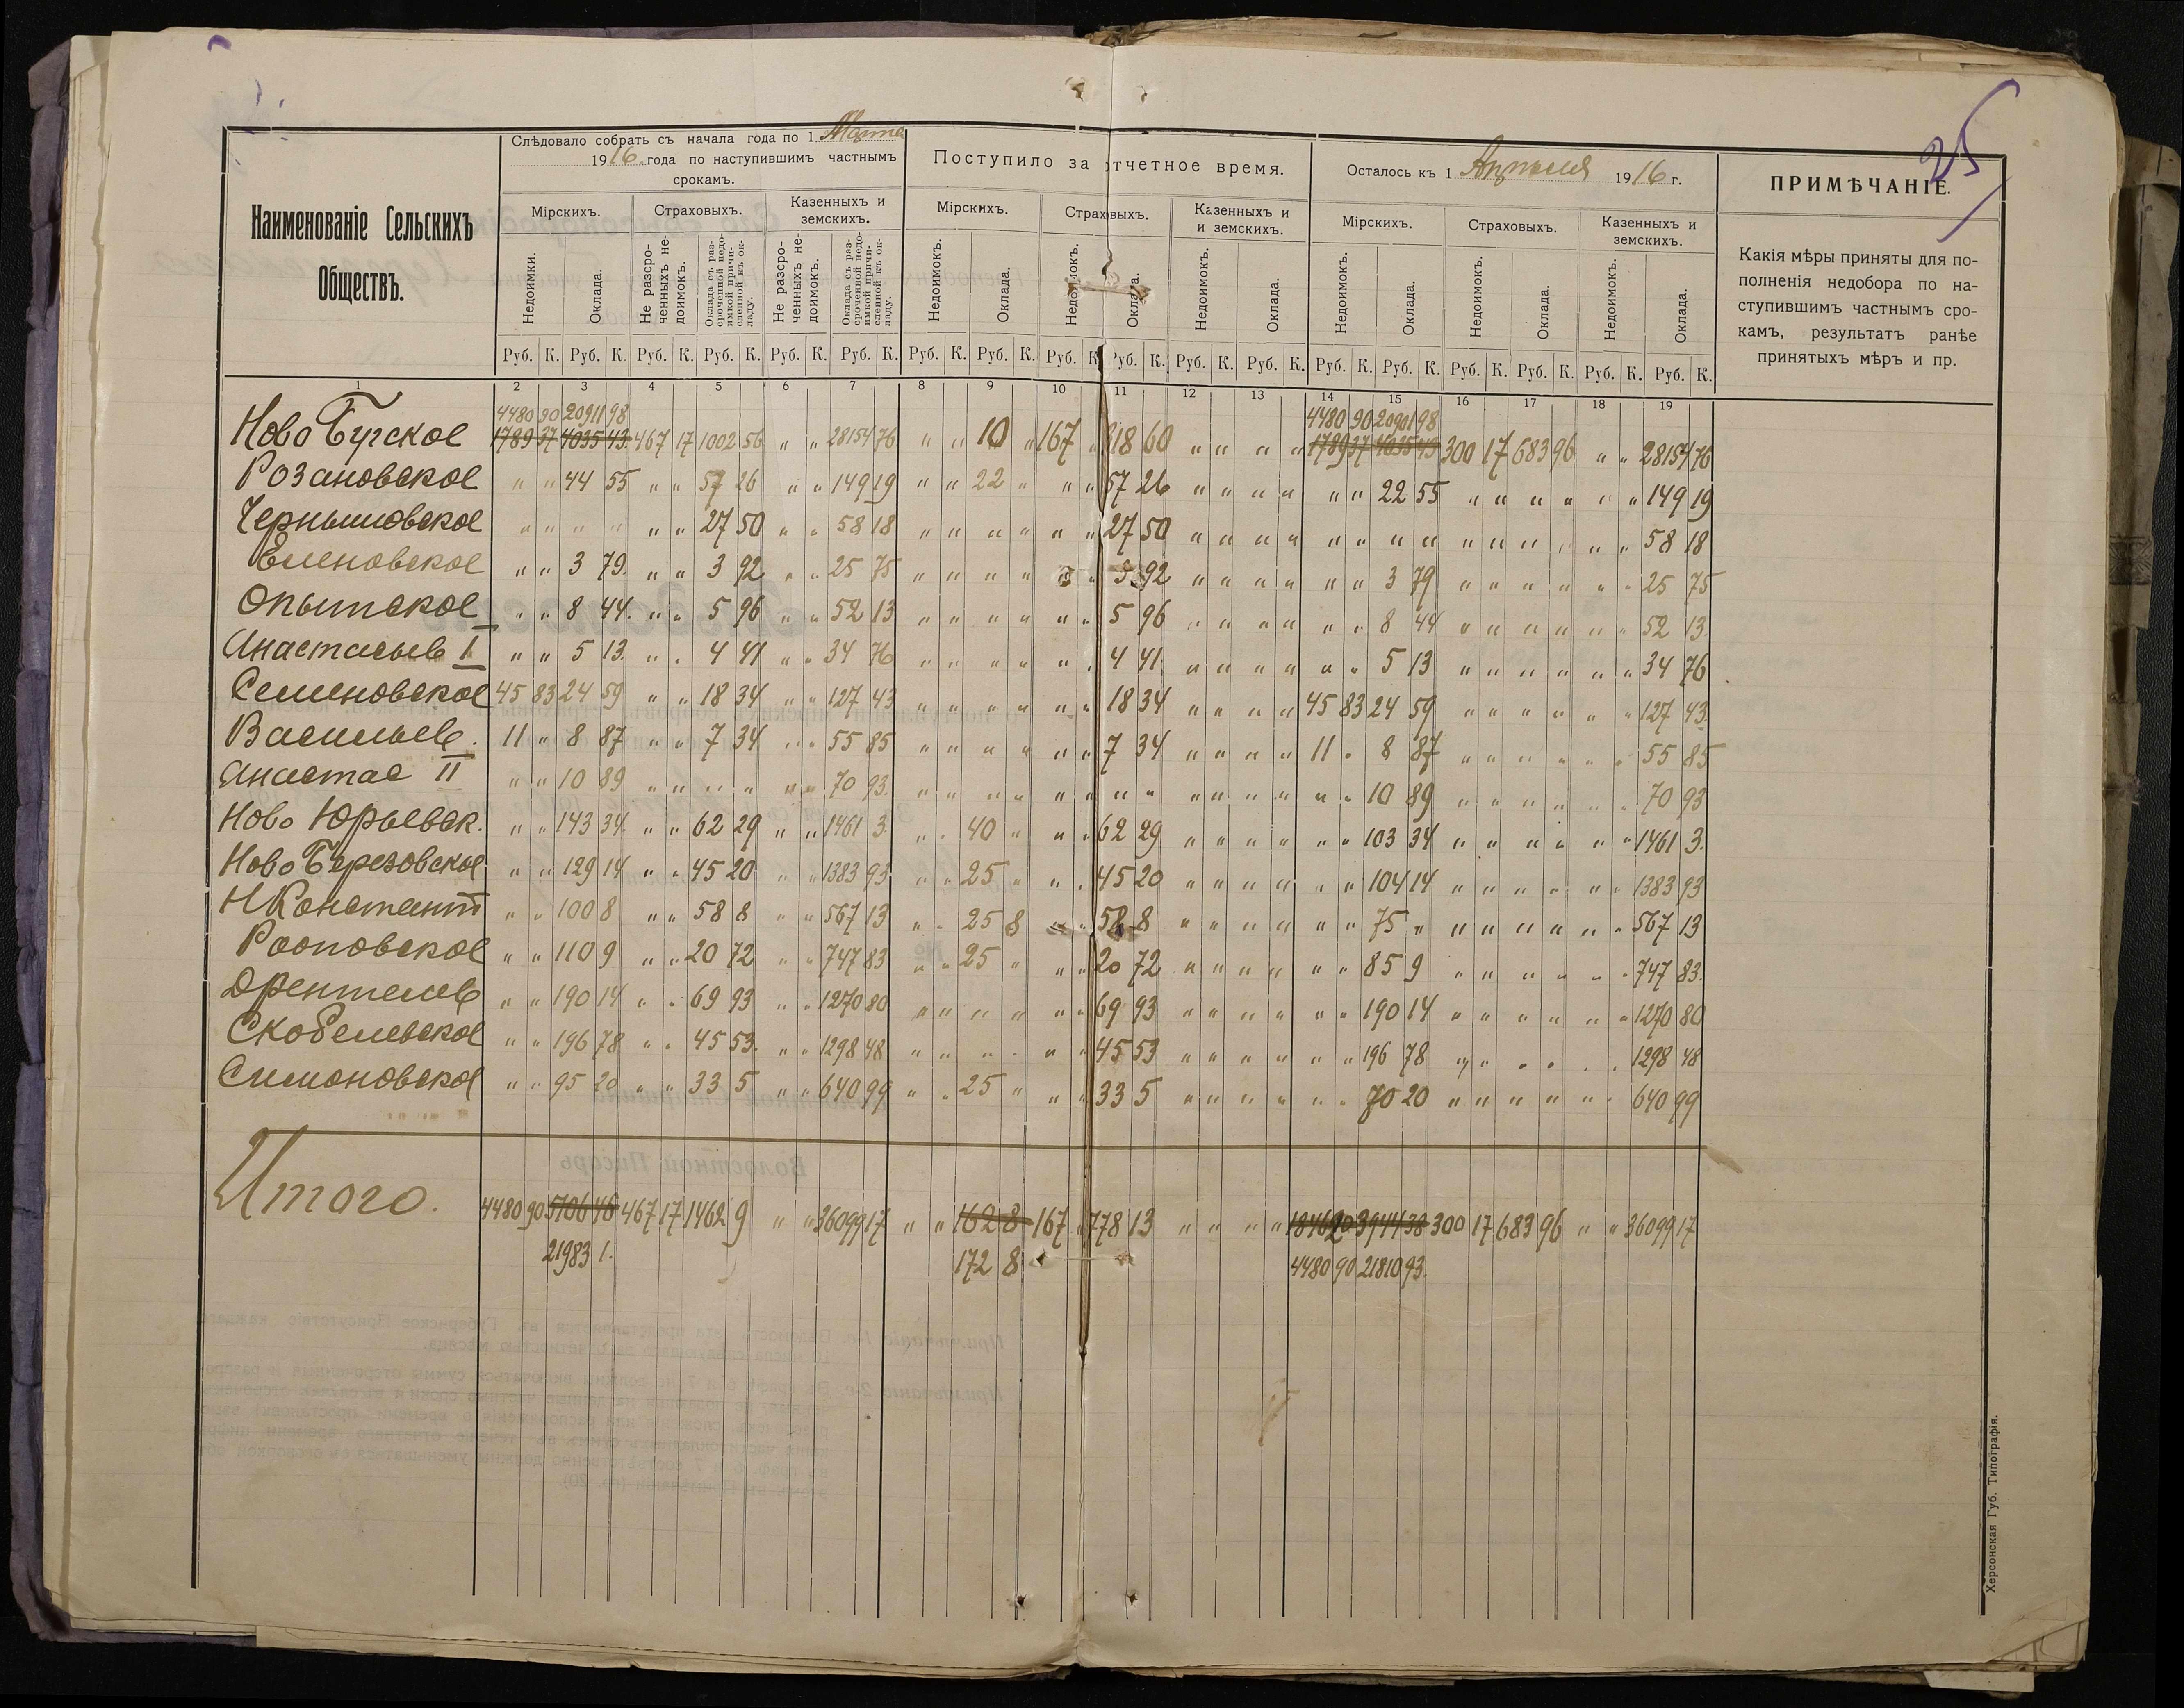 25
Слѣдовало собрать съ начала года по 1 Марта
1916 года по наступившимъ частнымъ
срокамъ.
Поступило за отчетное время.
Осталось къ 1 Апрѣля 1916 г.
ПРИМѢЧАНІЕ.
Наименованіе Сельскихъ
Обществъ.
Мірскихъ. Страховыхъ. Казенныхъ и земскихъ. Мірскихъ. Страховыхъ. Казенныхъ и и земскихъ. Мірскихъ. Страховыхъ. Казенныхъ и земскихъ.
Недоимки. Оклада. Не разсро-ченныхъ не-доимокъ. Оклада съ раз-сроченной недо-имкой причи-сленной къ ок-ладу. Не разсро-ченныхъ не-доимокъ. Оклада съ раз-сроченной недо-имкой причи-сленной къ ок-ладу. Недоимокъ. Оклада. Недоимокъ. Оклада. Недоимокъ. Оклада. Недоимокъ. Оклада. Недоимокъ. Оклада. Недоимокъ. Оклада.
Какія мѣры приняты для по-
полненія недобора по на-
ступившимъ частнымъ сро-
камъ, результатъ ранѣе
принятыхъ мѣръ и пр.
Руб. К. Руб. К. Руб. К. Руб. К. Руб. К. Руб. К. Руб. К. Руб. К. Руб. К. Руб. К. Руб. К. Руб. К. Руб. К. Руб. К. Руб. К. Руб. К. Руб. К. Руб. К.
1 2 3 4 5 6 7 8 9 10 11 12 13 14 15 16 17 18 19
4480 90 20911 98 4480 90 20901 98
Ново Бугское 1789 37 4035 43 467 17 1002 56 " " 28154 76 " " 10 " 167 " 318 60 " " " " 1789 37 4035 43 300 17 683 96 " " 28154 76
Розановское " " 44 55 " " 57 26 " " 149 19 " " 22 " " " 57 26 " " " " " " 22 55 " " " " " " 149 19
Чернышовское " " " " " " 27 50 " " 58 18 " " " " " " 27 50 " " " " " " " " " " " " " " 58 18
Еленовское " " 3 79 " " 3 92 " " 25 75 " " " " " " 3 92 " " " " " " 3 79 " " " " " " 25 75
Опытское " " 8 44 " " 5 96 " " 52 13 " " " " " " 5 96 " " " " " " 8 44 " " " " " " 52 13
Анастасьев I " " 5 13 " " 4 41 " " 34 76 " " " " " " 4 41 " " " " " " 5 13 " " " " " " 34 76
Семеновское 45 83 24 59 " " 18 34 " " 127 43 " " " " " " 18 34 " " " " 45 83 24 59 " " " " " " 127 43
Васильев. 11 " 8 87 " " 7 34 " " 55 85 " " " " " " 7 34 " " " " 11 " 8 87 " " " " " " 55 85
Анастас II " " 10 89 " " " " " " 70 93 " " " " " " " " " " " " " " 10 89 " " " " " " 70 93
Ново Юрьевск. " " 143 34 " " 62 29 " " 1461 3 " " 40 " " " 62 29 " " " " " " 103 34 " " " " " " 1461 3
Ново Березовское " " 129 14 " " 45 20 " " 1383 93 " " 25 " " " 45 20 " " " " " " 104 14 " " " " " " 1383 93
Н Константт " " 100 8 " " 58 8 " " 567 13 " " 25 8 " " 58 8 " " " " " " 75 " " " " " " " 567 13
Рооповское " " 110 9 " " 20 72 " " 747 83 " " 25 " " " 20 72 " " " " " " 85 9 " " " " " " 747 83
Дрентельев " " 190 14 " " 69 93 " " 1270 80 " " " " " " 69 93 " " " " " " 190 14 " " " " " " 1270 80
Скобелевское " " 196 78 " " 45 53 " " 1298 48 " " " " " " 45 53 " " " " " " 196 78 " " " " " " 1298 48
Симоновское " " 95 20 " " 33 5 " " 640 99 " " 25 " " " 33 5 " " " " " " 70 20 " " " " " " 640 99
Итого. 4480 90 5106 46 467 17 1462 9 " " 36099 17 " " 162 8 167 " 778 13 " " " " 1846 20 3944 38 300 17 683 96 " " 36099 17
21983 1. 172 8 4480 90 21810 93.
Херсонская Губ. Типографія.